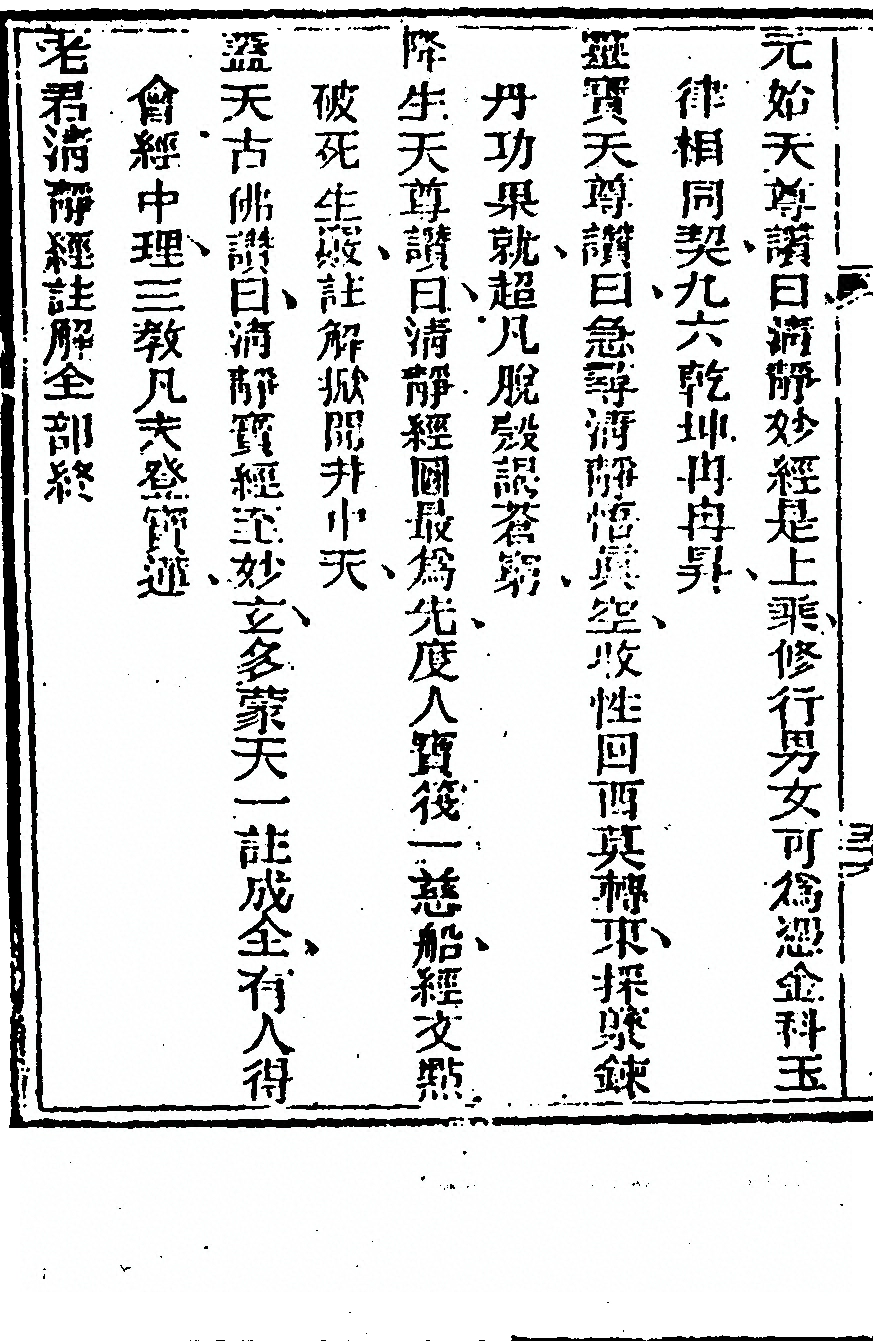 元始天尊讚曰淸靜妙經是上乘修行男女可爲憑金科玉
律相同契九六乾坤冉冉昇
靈寶天尊讚曰急尋淸靜悟眞空收性回西莫轉東採藥鍊
丹功果就超凡脫殼謁蒼穹
降生天尊讚曰淸靜經圖最爲先度人寶筏一慈船經文點
破死生竅註解掀開井中天
蓋天古佛讚曰淸靜寶經至妙玄多蒙天一註成全有人得
會經中理三敎凡夫登寶蓮
老君淸靜經註解全部終